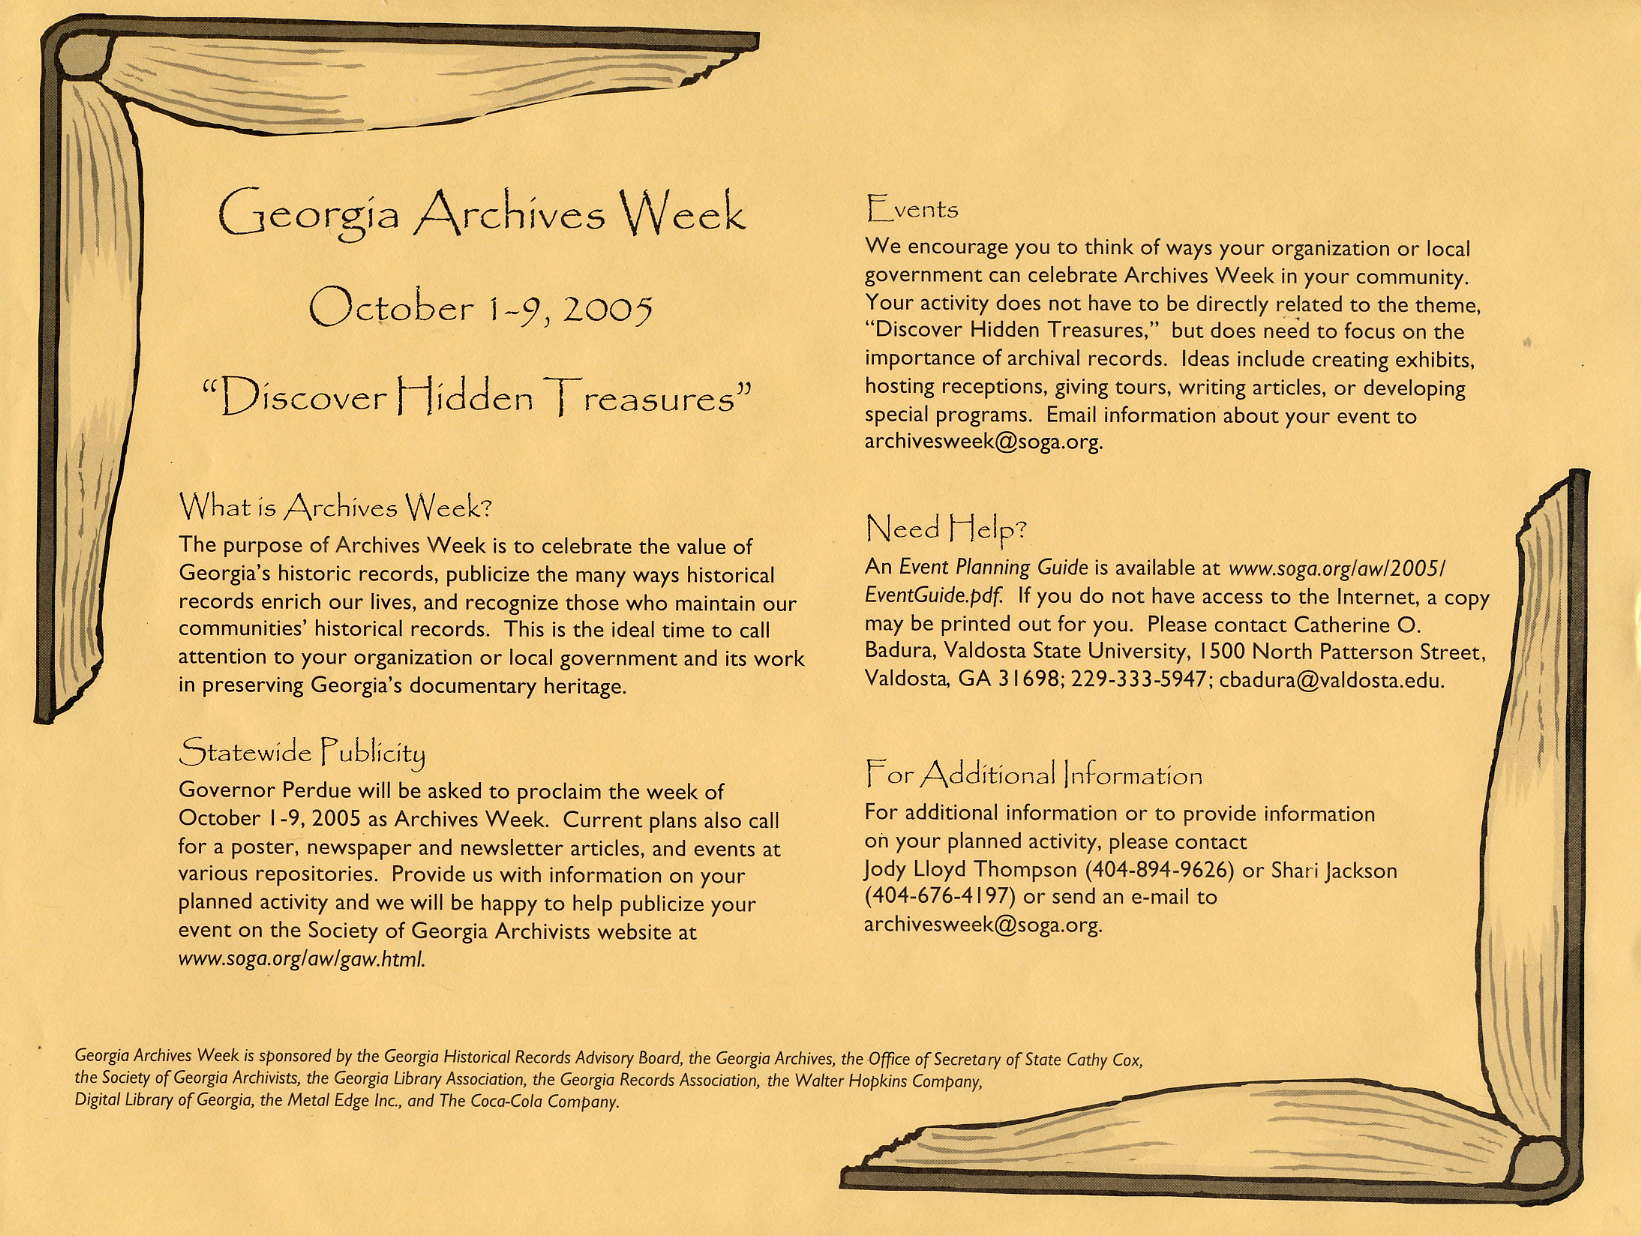 Georgia Archives Week
October 1-9, 2005
“Discover Hidden Treasures”
What is Archives Week?
The purpose of Archives Week is to celebrate the value of
Georgia’s historic records, publicize the many ways historical
records enrich our lives, and recognize those who maintain our
communities’ historical records.  This is the ideal time to call
attention to your organization or local government and its work
in preserving Georgia’s documentary heritage.
Statewide Publicity
Governor Perdue will be asked to proclaim the week of
October 1-9, 2005 as Archives Week.  Current plans also call
for a poster, newspaper and newsletter articles, and events at
various repositories.  Provide us with information on your
planned activity and we will be happy to help publicize your
event on the Society of Georgia Archivists website at
www.soga.org/aw/gaw.html.
Events
We encourage you to think of ways your organization or local
government can celebrate Archives Week in your community.
Your activity does not have to be directly related to the theme,
“Discover Hidden Treasures,”  but does need to focus on the
importance of archival records.  Ideas include creating exhibits,
hosting receptions, giving tours, writing articles, or developing
special programs.  Email information about your event to
archivesweek@soga.org.
Need Help?
An Event Planning Guide is available at www.soga.org/aw/2005/
EventGuide.pdf.  If you do not have access to the Internet, a copy
may be printed out for you.  Please contact Catherine O.
Badura, Valdosta State University, 1500 North Patterson Street,
Valdosta, GA 31698; 229-333-5947; cbadura@valdosta.edu.
For Additional Information
For additional information or to provide information
on your planned activity, please contact
Jody Lloyd Thompson (404-894-9626) or Shari Jackson
(404-676-4197) or send an e-mail to
archivesweek@soga.org.
Georgia Archives Week is sponsored by the Georgia Historical Records Advisory Board, the Georgia Archives, the Office of Secretary of State Cathy Cox,
the Society of Georgia Archivists, the Georgia Library Association, the Georgia Records Association, the Walter Hopkins Company,
Digital Library of Georgia, the Metal Edge Inc., and The Coca-Cola Company.